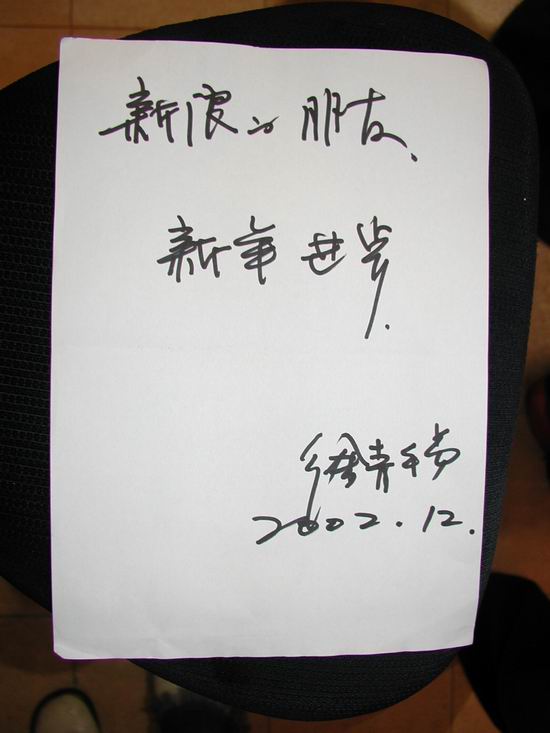 新浪的朋友、
新年进步.
徐
2002.12.